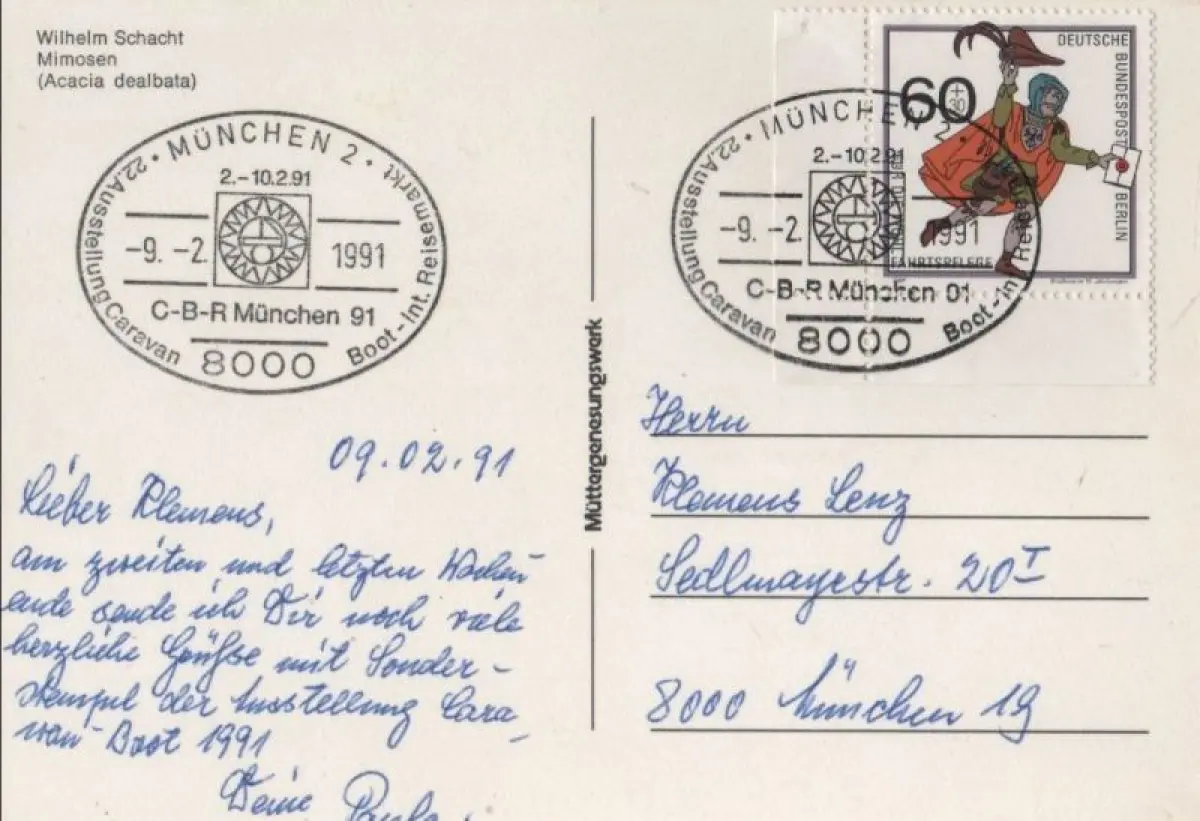 Wilhelm Schacht
Mimosen
(Acacia dealbata)
• MÜNCHEN 2 •
22. Ausstellung Caravan
Boot - Int. Reisemarkt
2.-10.2.91
-9. -2. 1991
C-B-R München 91
8000
DEUTSCHE BUNDESPOST BERLIN
60
+
30
FAHRTSPFLEGE
• MÜNCHEN 2
22. Ausstellung Caravan
Boot - Int. Rei
2.-10.2.91
-9. -2. 1991
C-B-R München 91
8000
Müttergenesungswerk
09.02.91
Lieber Klemens,
am zweiten und letzten Wochen-
ende sende ich Dir noch viele
herzliche Grüße mit Sonder-
stempel der Ausstellung Cara-
van-Boot 1991
Deine
Herrn
Klemens Lenz
Sedlmayrstr. 20 I
8000 München 19